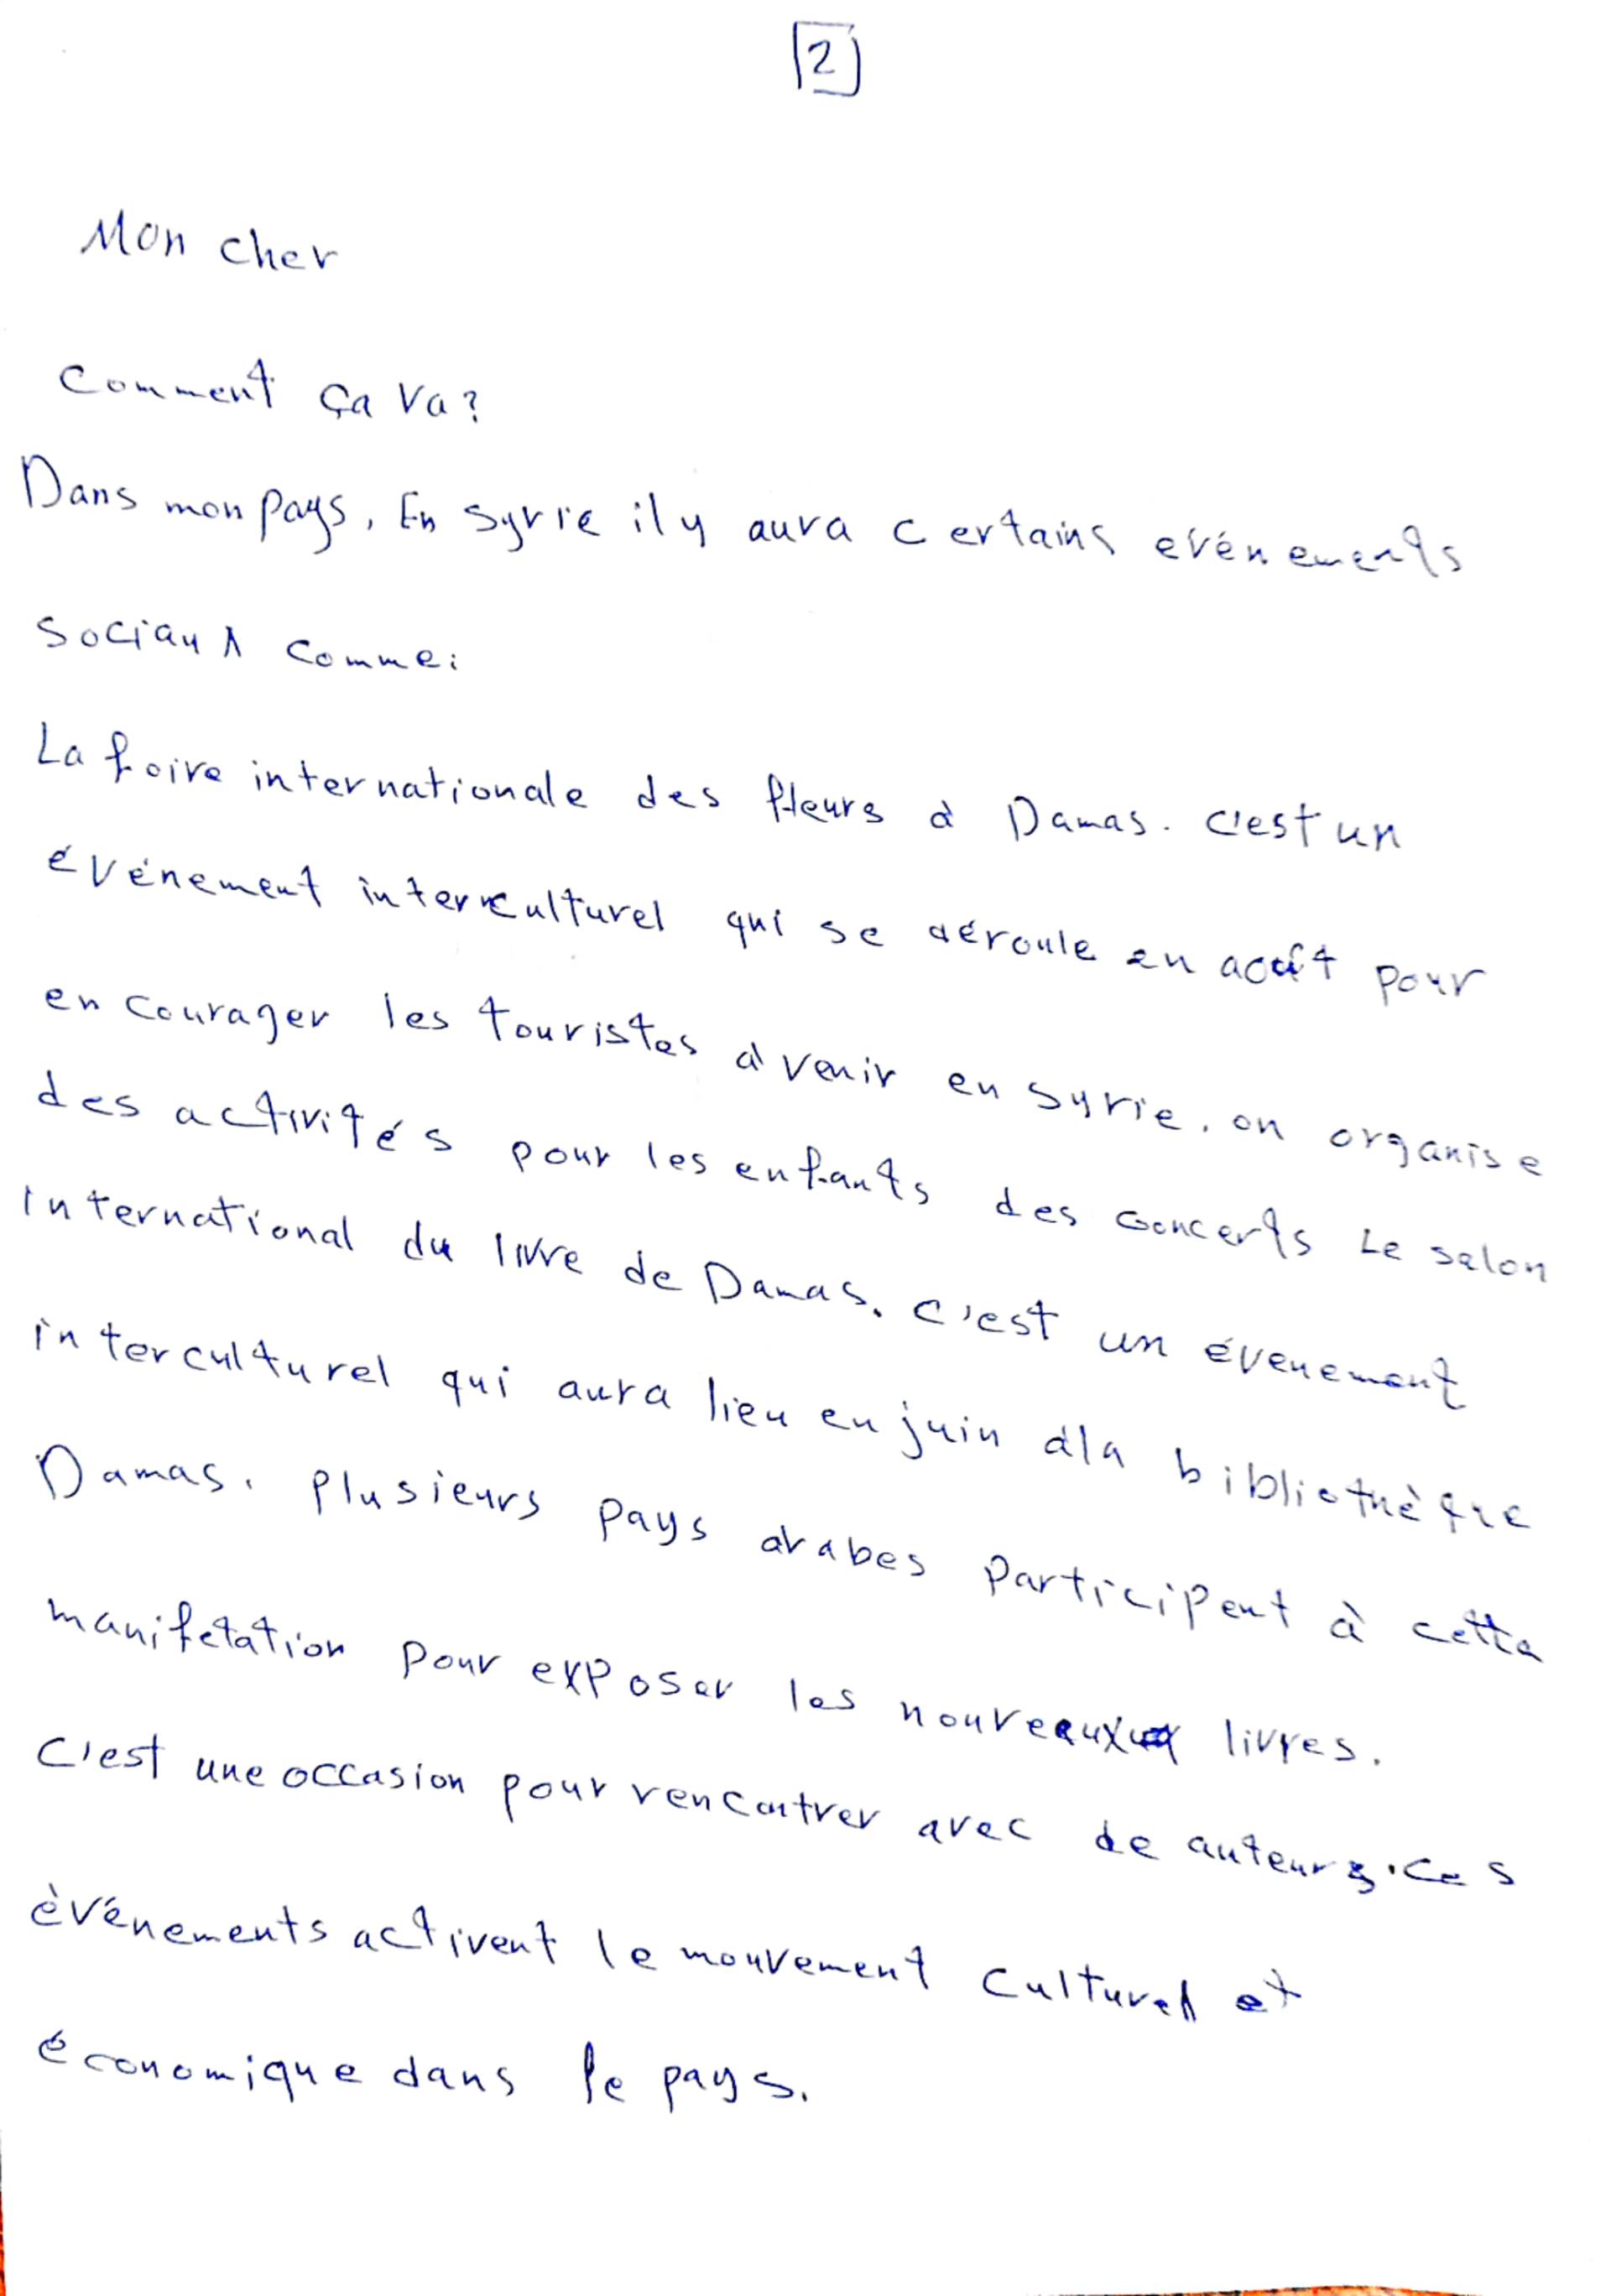 2
Mon cher
Comment ça va?
Dans mon pays, En syrie il y aura certains evénements
sociaux comme:
La foire internationale des fleurs à Damas. c'est un
événement interculturel qui se déroule en août pour
encourager les touristes à venir en syrie. on organise
des activités pour les enfants des concerts Le salon
International du livre de Damas. c'est un évenement
interculturel qui aura lieu en juin à la bibliothèque
Damas. Plusieurs pays arabes participent à cette
manifetation pour exposer les nouveaux livres.
C'est une occasion pour rencontrer avec de auteurs. ces
èvénements activent le mouvement culturel et
économique dans le pays.